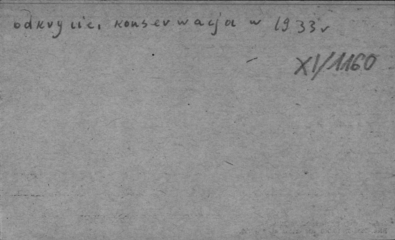 odkrycie, konserwacja w 1933 r
XI/1160